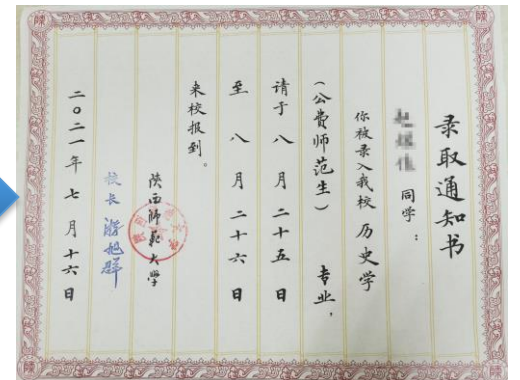 录取通知书
同学：
你被录入我校 历史学
（公费师范生） 专业，
请于 八 月 二十五 日
至 八 月 二十六 日
来校报到。
陕西师范大学
校长 游旭群
二〇二一年 七 月 十六 日